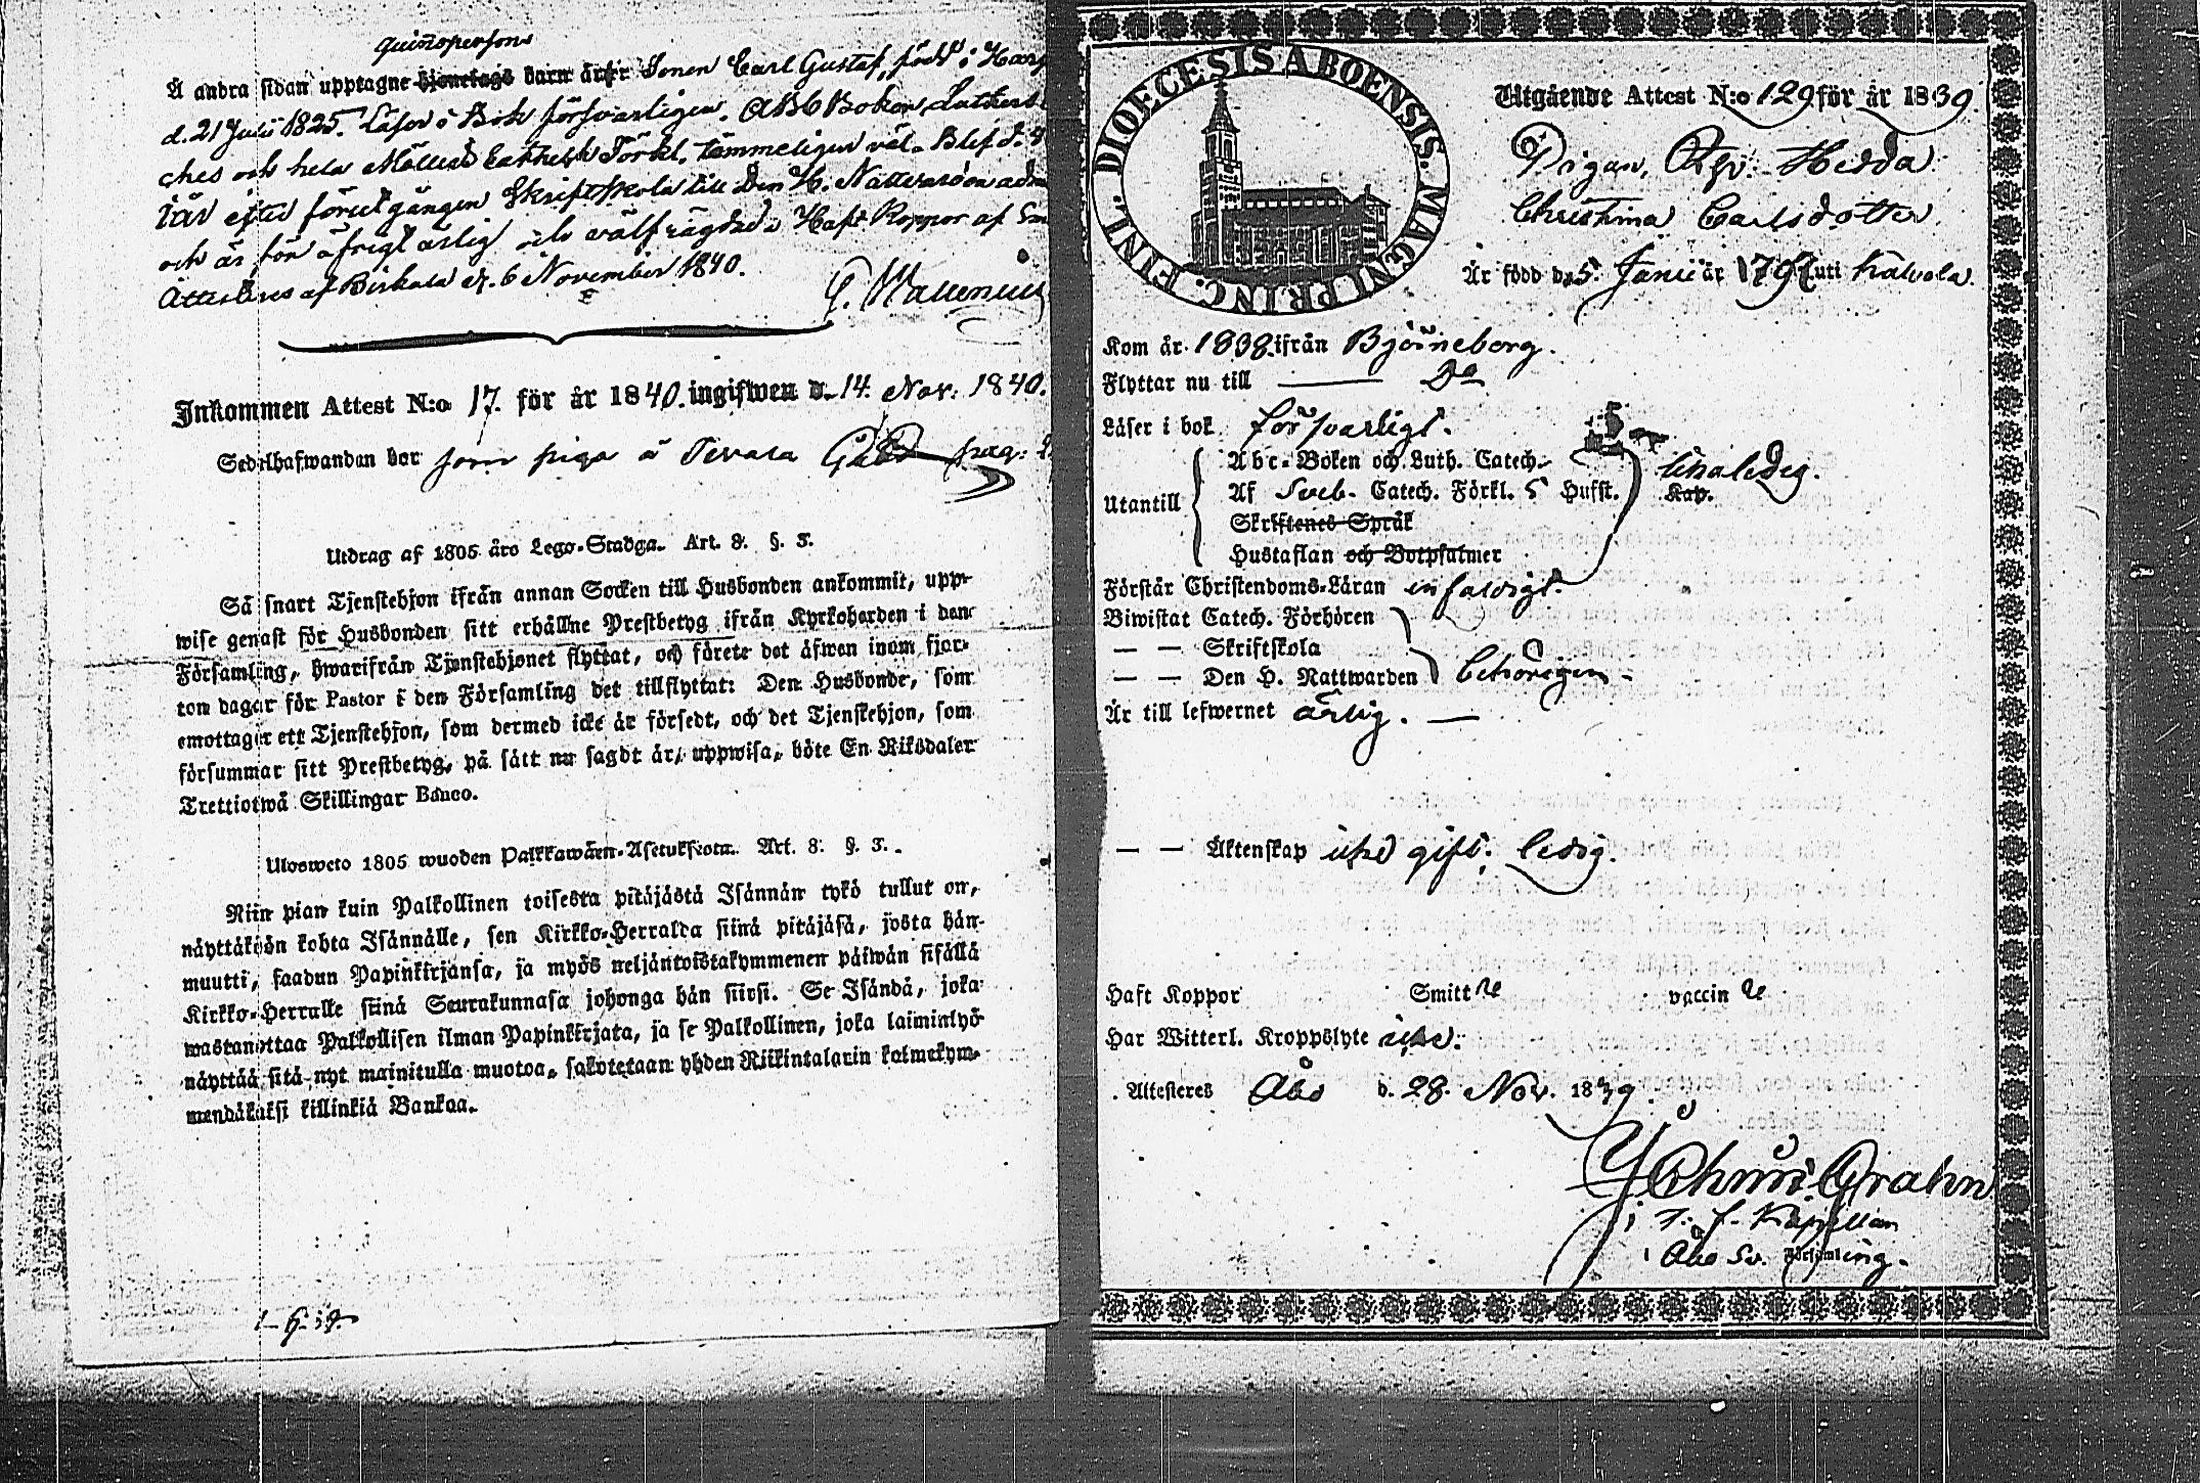 Quinnspersons
Å andra sidan upptagne hjonelags barn är Sonen Carl Gustaf, född i
d. 21 Julii 1825. Läser i Bok försvarligen. ABC Boken, Lutheri
ches och hela Möllers Förkl. tämmeligen väl. Blef d.
iår efter föregången Skriftskola till den H. Nattvarden
och är för öfrigt ärlig och välfrägdad. Haft Koppor af
Attesteras af Birkala d. 6 November 1840.
Inkommen Attest N:o 17. för år 1840. ingifwen d. 14. Nov: 1840.
Sedelhafwandan bor som piga å Gård pag:
Utdrag af 1805 års Lego-Stadga. Art. 8. §. 3.
Så snart Tjenstehjon ifrån annan Socken till Husbonden ankommit, upp-
wise genast för Husbonden sitt erhållne Prestbetyg ifrån Kyrkoherden i den
Församling, hwarifrån Tjenstehjonet flyttat, och förete det äfwen inom fjor-
ton dagar för Pastor i den Församling det tillflyttat: Den Husbonde, som
emottager ett Tjenstehjon, som dermed icke är försedt, och det Tjenstehjon, som
försummar sitt Prestbetyg, på sätt nu sagdt är, uppwisa, böte En Riksdaler
Trettiotwå Skillingar Banco.
Ulosweto 1805 wuoden Palkkawäen-Asetuksesta. Art. 8. §. 3.
Niin pian kuin Palkollinen toisesta pitäjästä Isännän tykö tullut on,
näyttäköön kohta Isännälle, sen Kirkko-Herralta siinä pitäjäsä, josta hän
muutti, saadun Papinkirjansa, ja myös neljäntoistakymmenen päiwän sisällä
Kirkko-Herralle siinä Seurakunnasa johonga hän siirsi. Se Isändä, joka
wastanottaa Palkollisen ilman Papinkirjata, ja se Palkollinen, joka laiminlyö
näyttää sitä nyt mainitulla muotoa, sakotetaan yhden Riikintalarin kolmekym-
mendäkaksi killinkiä Bankoa.
DIOECESIS ABOENSIS. MAGNI PRINC. FINL.
Utgående Attest N:o 129 för år 1839.
Pigan, Hedda
Christina Carlsdotter
Är född d. 5. Januiär uti
Kom år 1838. ifrån Björneborg.
Flyttar nu till — Do
Läser i bok försvarligt.
Utantill
Abc-Boken och Luth. Catech.
Af Sveb. Catech. Förkl. 5 Hufst. Kap.
Skriftenes Språk
Hustaflan och Botpsalmer
Förstår Christendoms-Läran enfaldigt.
Biwistat Catech. Förhören
— — Skriftskola
— — Den H. Nattwarden behörigen.
Är till lefwernet ärlig. —
— — Äktenskap icke gift. ledig.
Haft Koppor Smitt vaccin
Har Witterl. Kroppslyte icke.
Attesteres Åbo d. 28. Nov. 1839.
Grahn
T. f. Kapellan
i Åbo Sv. Församling.